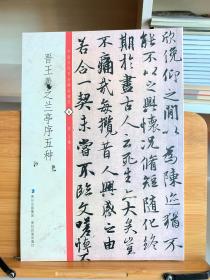 欣俛仰之閒以為陳迹猶不
能不以之興懷況脩短隨化終
期於盡古人云死生亦大矣豈
不痛哉每攬昔人興感之由
若合一契未嘗不臨文嗟悼
晋王羲之兰亭序五种